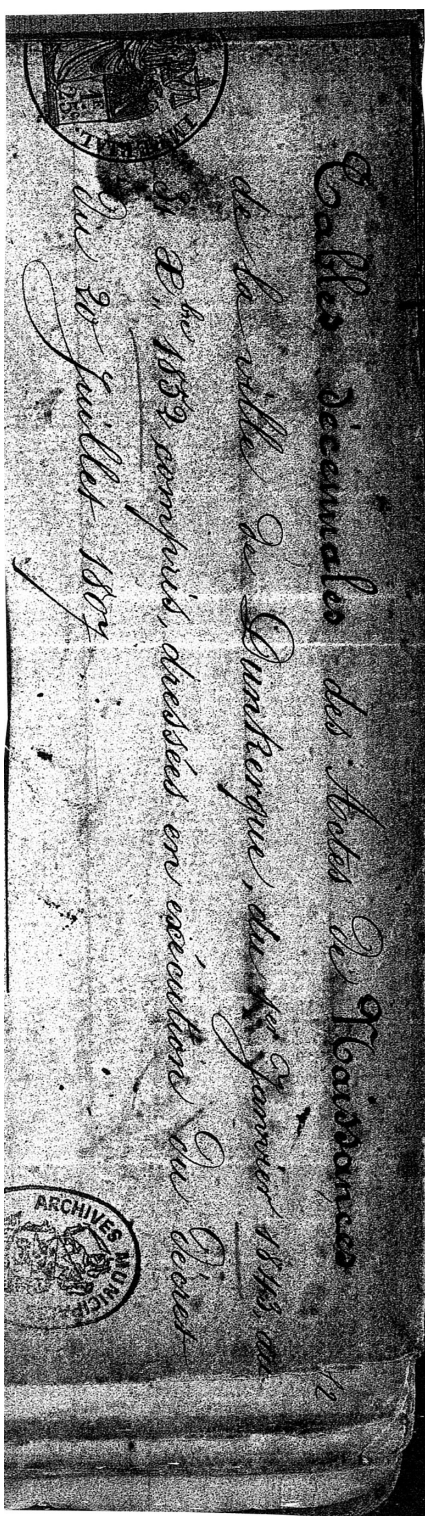 Tables décennales des Actes de Naissances
de la ville de Dunkerque, du 1er Janvier 1843, au
31 Xbre 1852 compris, dressées en exécution du Décret
du 20 Juillet 1807
1/2
IMPERIAL.
1F
25C
ARCHIVES MUNICIP